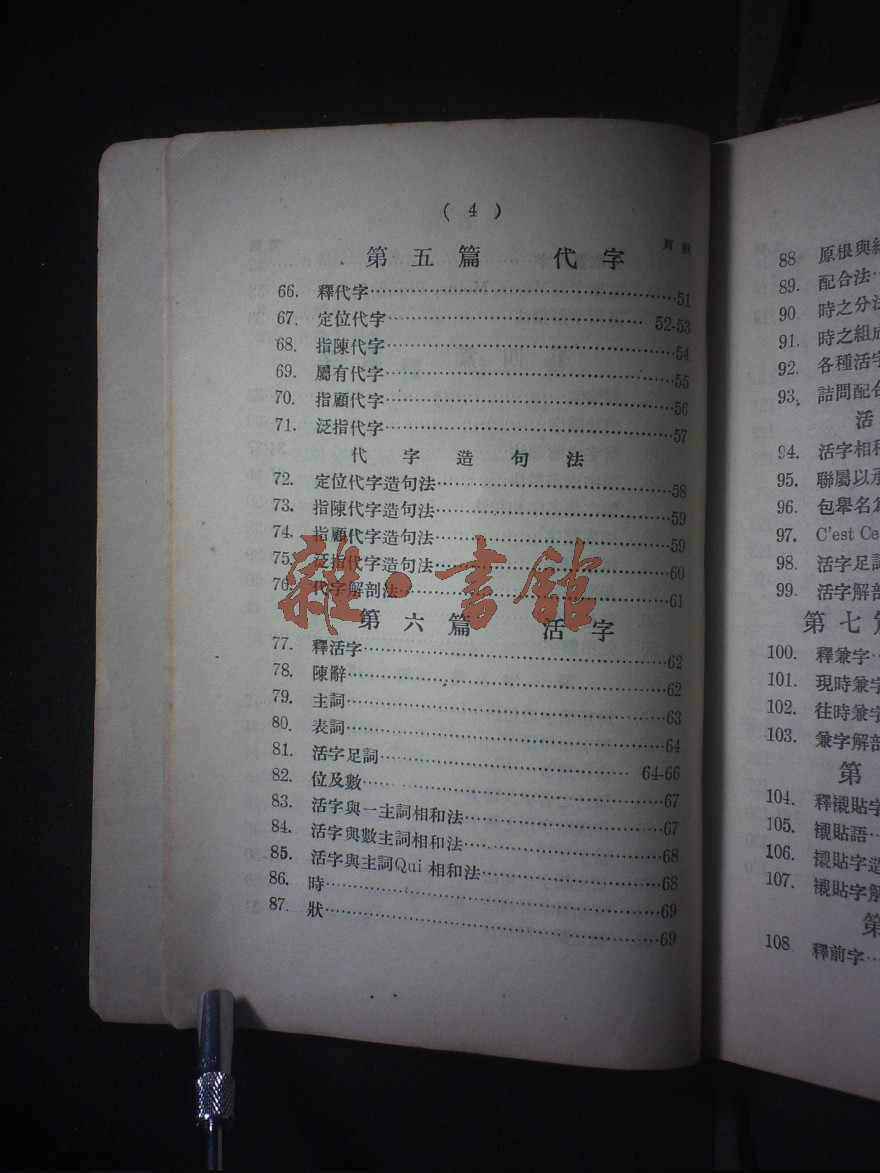 ( 4 )
頁數
第五篇 代字
66. 釋代字…51
67. 定位代字…52-53
68. 指陳代字…54
69. 屬有代字…55
70. 指顧代字…56
71. 泛指代字…57
代字造句法
72. 定位代字造句法…58
73. 指陳代字造句法…59
74. 指顧代字造句法…59
75. 泛指代字造句法…60
76. 代字解剖法…61
第六篇 活字
77. 釋活字…62
78. 陳辭…62
79. 主詞…63
80. 表詞…64
81. 活字足詞…64-66
82. 位及數…67
83. 活字與一主詞相和法…67
84. 活字與數主詞相和法…68
85. 活字與主詞Qui 相和法…68
86. 時…69
87. 狀…69
雜·書館
88 原根與
89. 配合法…
90. 時之分法
91. 時之組成
92. 各種活字
93. 詰問配合
活
94. 活字相和
95. 聯屬以承
96. 包舉名
97. C'est Ce
98. 活字足詞
99. 活字解剖
第七篇
100. 釋兼字…
101. 現時兼字
102. 往時兼字
103. 兼字解剖
第
104. 釋襯貼字
105. 襯貼語…
106. 襯貼字造
107. 襯貼字解
第
108 釋前字…